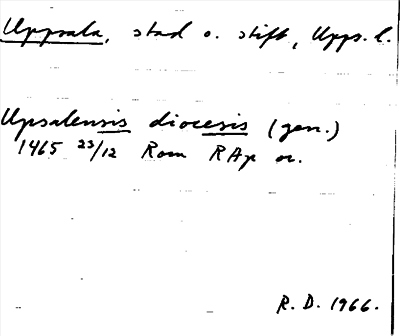 Uppsala, stad o. stift, Upps. l.
Upsalensis diocesis (gen.)
1465 23/12 Rom RAp or.
R. D. 1966.